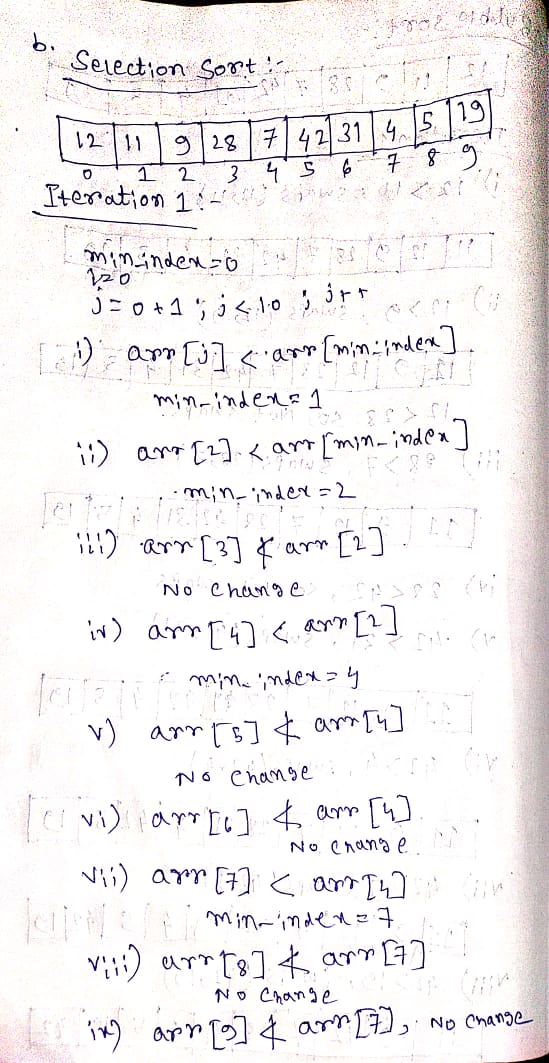 b.
Selection Sort :-
12 11 9 28 7 42 31 4 5 19
0 1 2 3 4 5 6 7 8 9
Iteration 1 :-
min-index=0
i=0
j=0+1 ; j<10 ; j++
i) arr[j] < arr[min-index]
min-index=1
ii) arr[2] < arr[min-index]
min-index=2
iii) arr[3] ≮ arr[2]
No change
iv) arr[4] < arr[2]
min-index=4
v) arr[5] ≮ arr[4]
No change
vi) arr[6] ≮ arr[4]
No change
vii) arr[7] < arr[4]
min-index=7
viii) arr[8] ≮ arr[7]
No change
ix) arr[9] ≮ arr[7], No change